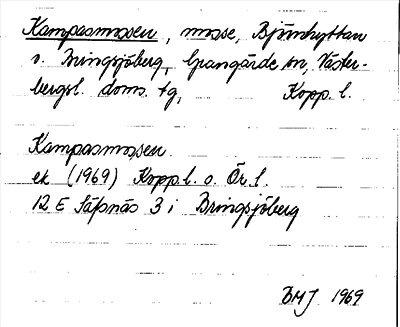 Kampasmossen, mosse, Björnhyttan
v. Bringsjöberg, Grangärde sn, Väster-
bergsl. doms. tg, Kopp. l.
Kampasmossen
ek (1969) Kopp. l. o. Ör. l.
12 E Säfsnäs 3 i Bringsjöberg
BMJ 1969